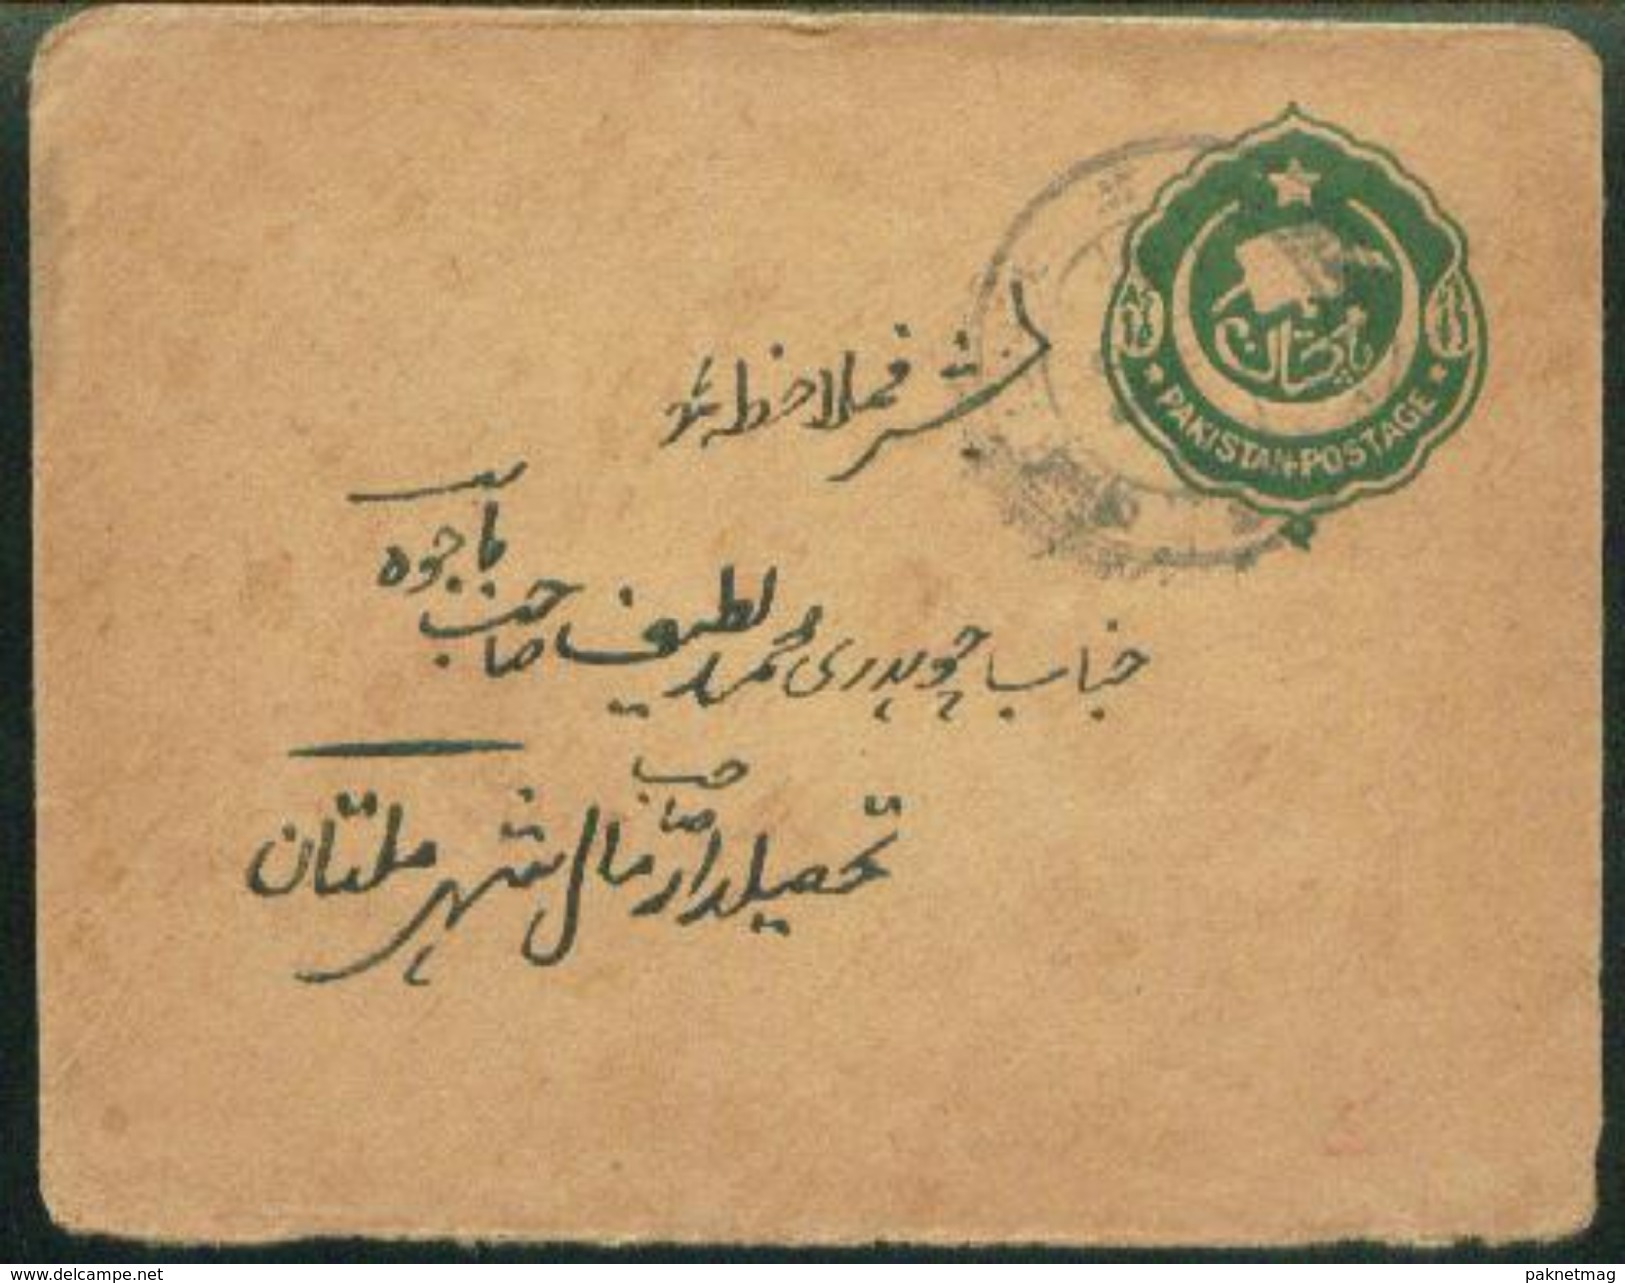 پاکستان
PAKISTAN POSTAGE
ملاحظہ ہو
باجوہ
جناب چوہدری محمد لطیف صاحب
صاحب
تحصیلدار مال شہر ملتان
delcampe.net
paknetmag